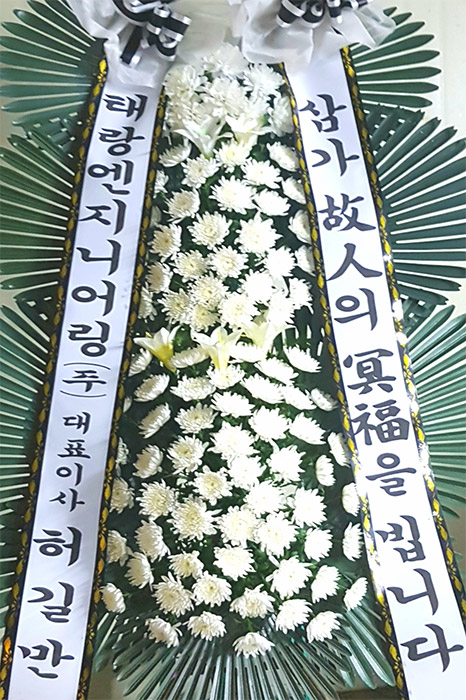 태랑엔지니어링(주) 대표이사 허길만
삼가 故人의 冥福을 빕니다